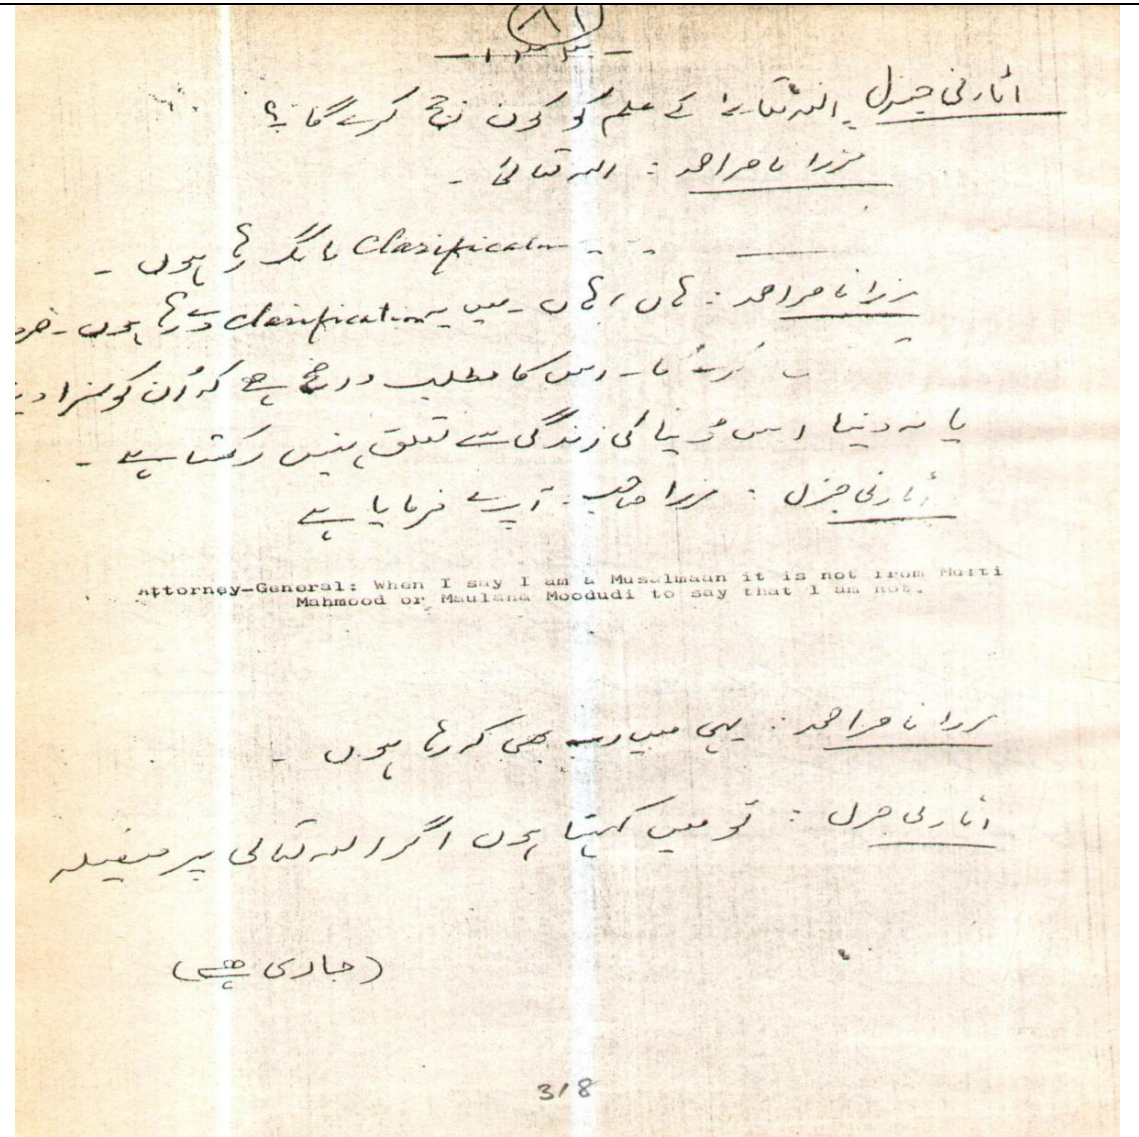 ۸۱
اٹارنی جنرل۔ اللہ تعالیٰ کے علم کو کون جج کرے گا ؟
مرزا ناصر احمد : اللہ تعالیٰ ۔
Clarification مانگ رہا ہوں ۔
مرزا ناصر احمد : ہاں ، ہاں ۔ میں یہ Clarification دے رہا ہوں ۔
اس کا مطلب واضح ہے کہ اُن کو سزا
یا نہ دینا اس دُنیا کی زندگی سے تعلق نہیں رکھتا ہے ۔
اٹارنی جنرل : مرزا صاحب : آپ نے فرمایا ہے
Attorney-General: When I say I am a Musalmaan it is not from Mufti
Mahmood or Maulana Moodudi to say that I am not.
مرزا ناصر احمد : یہی میں اب بھی کہ رہا ہوں ۔
اٹارنی جنرل : تو میں کہتا ہوں اگر اللہ تعالیٰ پر فیصلہ
(جاری ہے)
318